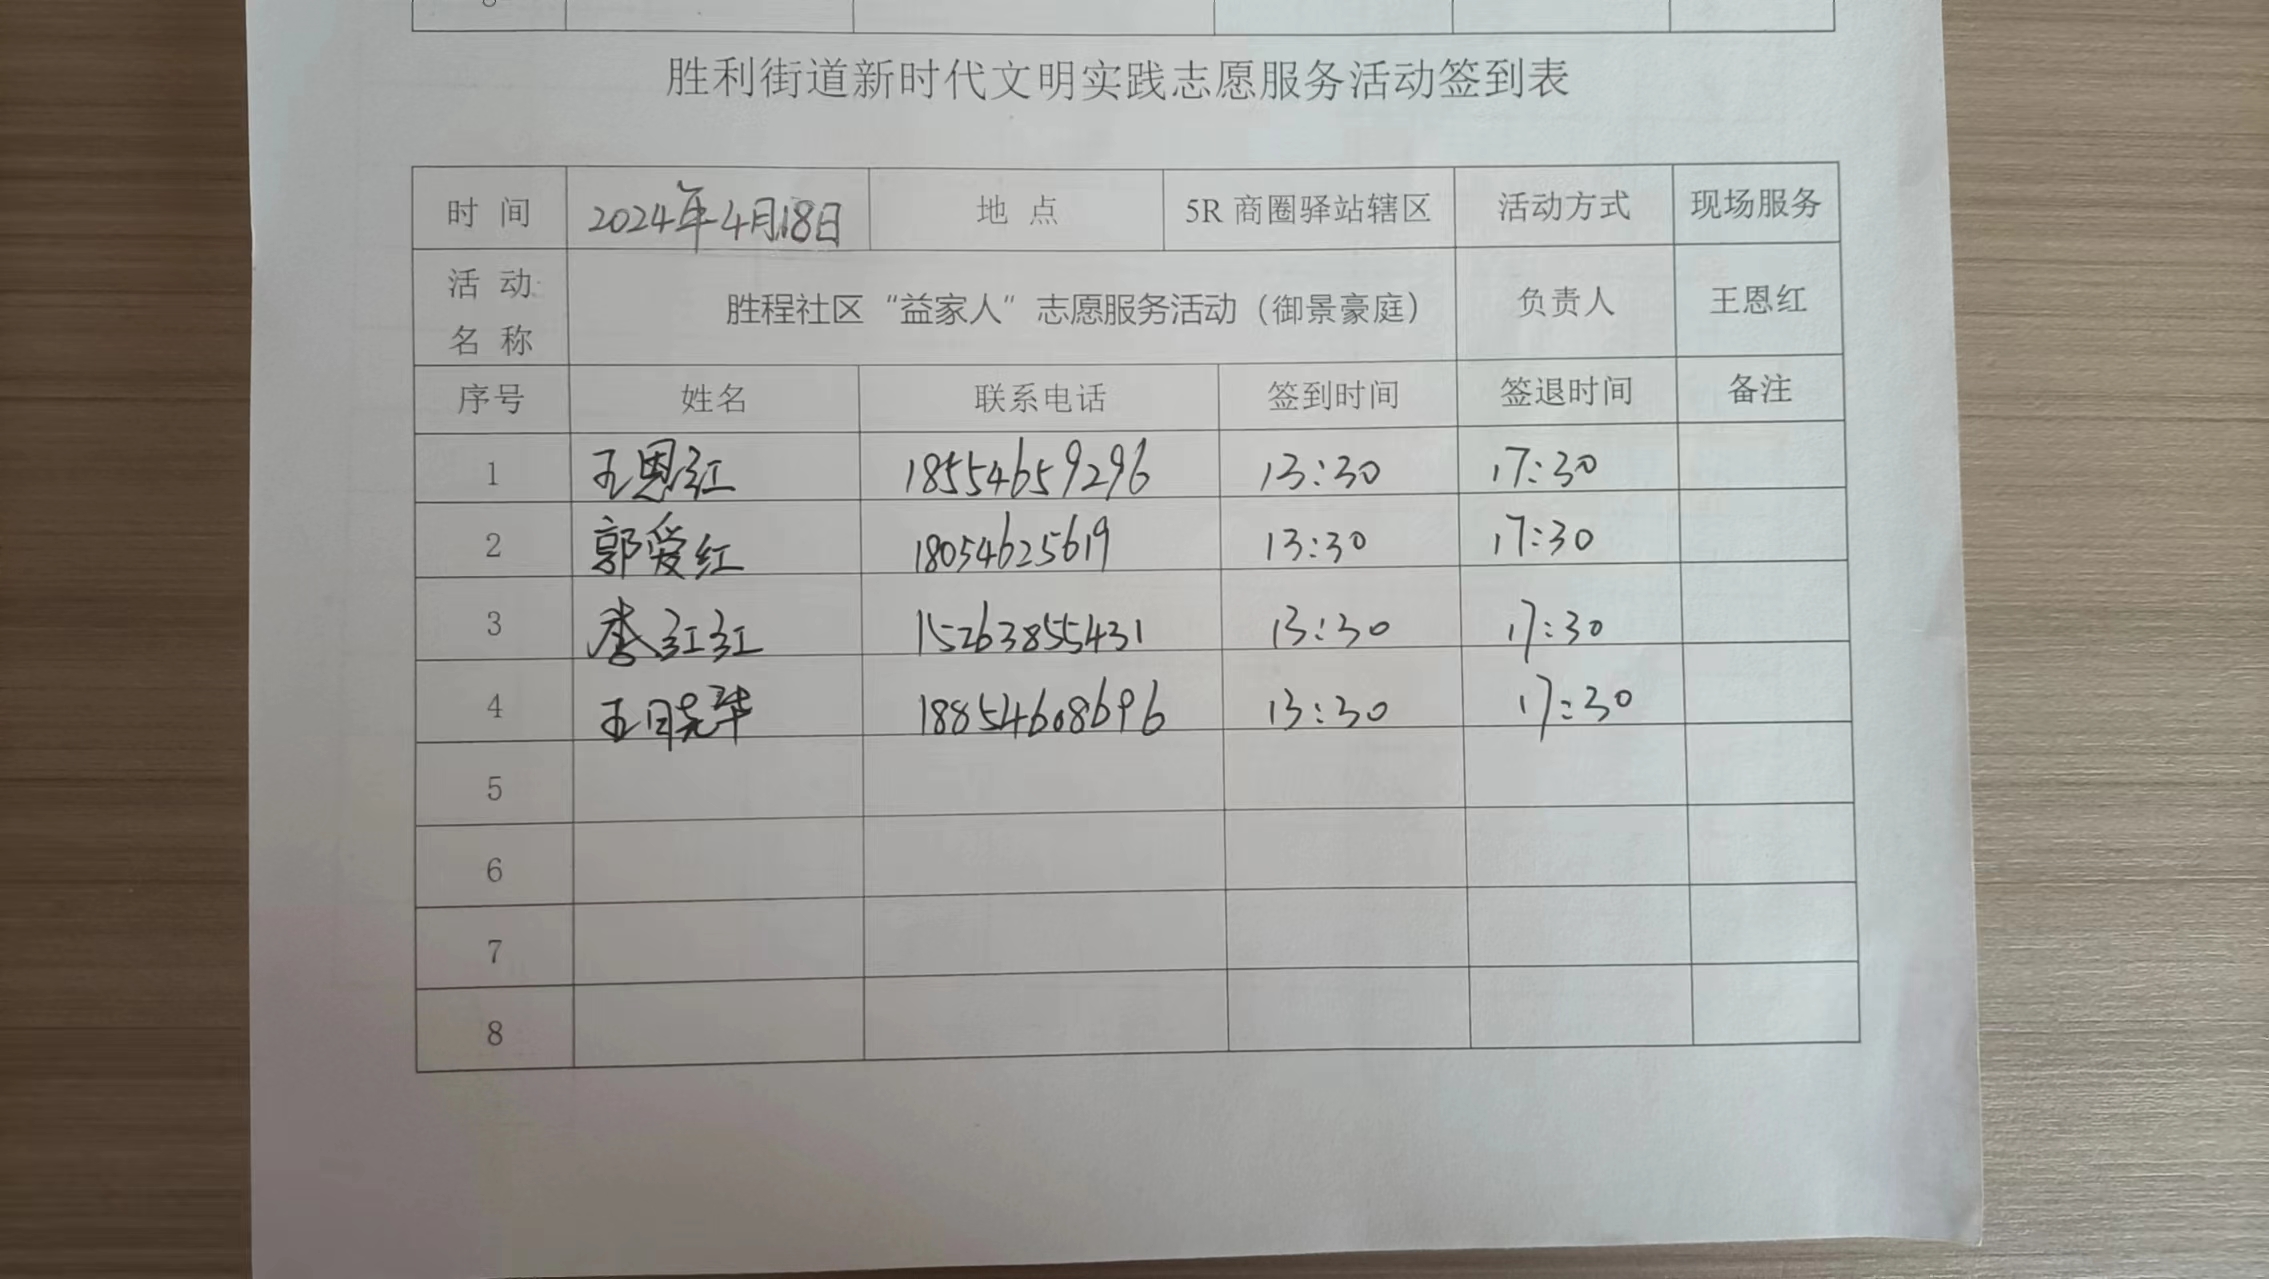 胜利街道新时代文明实践志愿服务活动签到表
时 间 2024年4月18日 地 点 5R 商圈驿站辖区 活动方式 现场服务
活 动 名 称 胜程社区“益家人”志愿服务活动（御景豪庭） 负责人 王恩红
序号 姓名 联系电话 签到时间 签退时间 备注
1 王恩红 18554659296 13:30 17:30
2 郭爱红 18054625619 13:30 17:30
3 李红红 15263855431 13:30 17:30
4 王晓华 18854608696 13:30 17:30
5
6
7
8